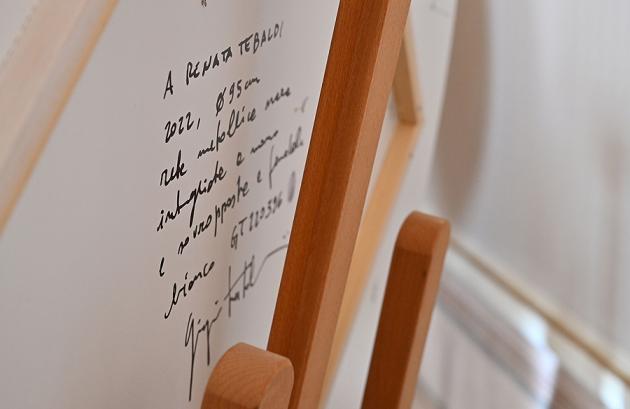 A RENATA TEBALDI
2022, Ø 95 cm
rete metallica nera
intagliate a mano
e sovrapposte e fondale
bianco GT220396